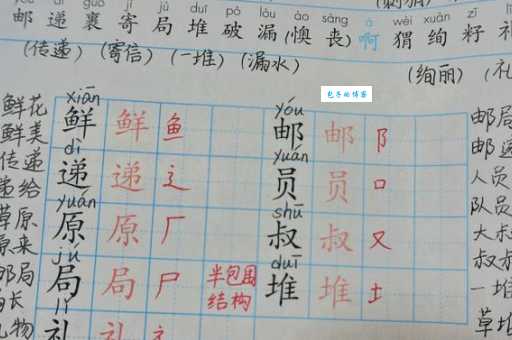 dì guǒ jì jú duī pò lòu ào sàng á wèi xuàn zǐ
邮 递 裹 寄 局 堆 破 漏 (懊 丧) 啊 猬 绚 籽 礼
(传递) (寄信) (一堆) (漏水) (绚丽) (礼
包子的博客
鲜花 xiān 鲜 鲜 鱼 yóu 邮 邮 阝 邮局
鲜美
传递 dì 递 递 辶 yuán 员 员 口 邮递
递给 人员
草原 yuán 原 原 厂 shū 叔 叔 又 队员
原来 大叔
邮局 jú 局 局 尸 半包围结构 duī 堆 堆 土 叔叔
一堆
礼物 lǐ 礼 礼 礻 草堆